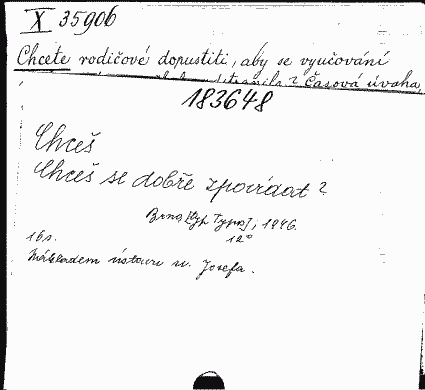 X 35906
Chcete rodičové dopustiti, aby se vyučování
Časová úvaha
183648
Chceš
Chceš se dobře zpovídat?
Brno, Typos, 1946.
16 s. 12°
Nákladem ústavu sv. Josefa.